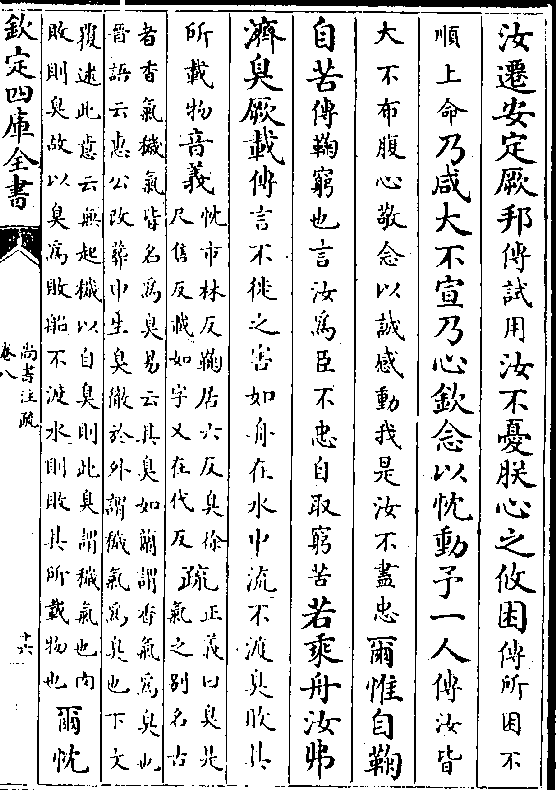 汝遷安定厥邦傳試用汝不憂朕心之攸困傳所困不
順上命乃咸大不宣乃心欽念以忱動予一人傳汝皆
大不布腹心敬念以誠感動我是汝不盡忠爾惟自鞠
自苦傳鞠窮也言汝爲臣不忠自取窮苦若乘舟汝弗
濟臭厥載傳言不徙之害如舟在水中流不渡臭敗其
所載物音義忱市林反鞠居六反臭徐
尺售反載如字又在代反疏正義曰臭是
氣之别名古
者香氣穢氣皆名爲臭易云其臭如蘭謂香氣爲臭也
晉語云惠公改葬申生臭徹於外謂穢氣爲臭也下文
覆述此意云無起穢以自臭則此臭謂穢氣也肉
敗則臭故以臭爲敗船不渡水則敗其所載物也爾忱
欽定四庫全書
尚書注疏
卷八
十六